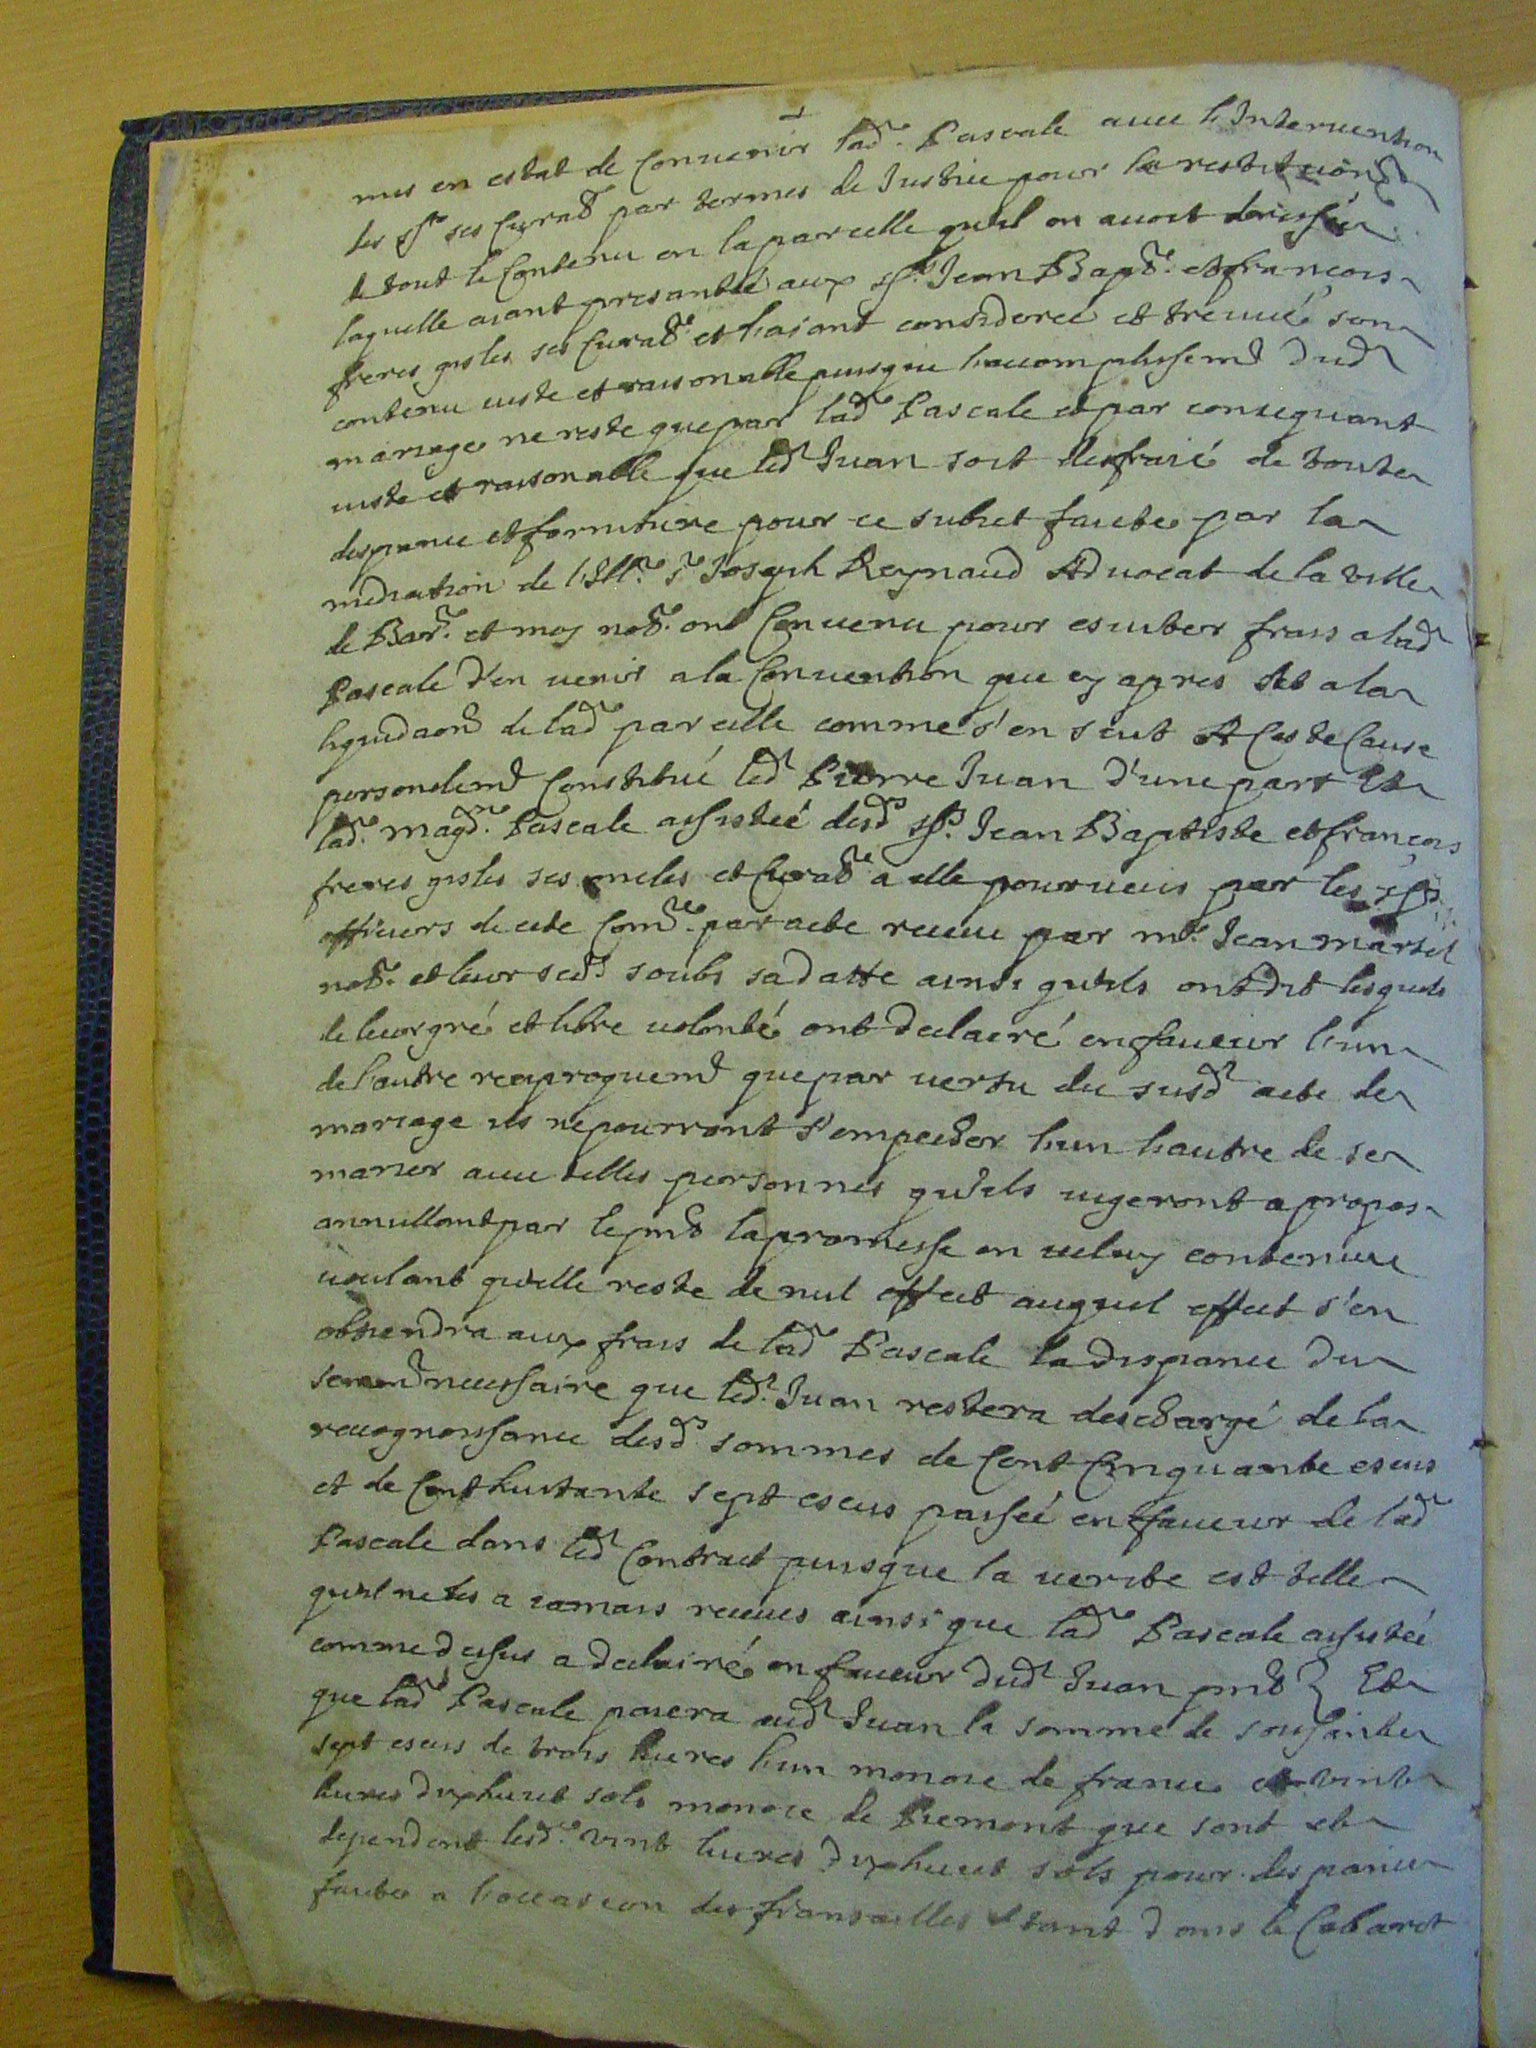 mis en estat de Convenir lad.e Pascale avec l'Intervention
des srs ses Curatrs par termes de Justice pour la restituõn
de tout le Contenu en la parcelle qu'il en avoit dressée
laquelle aiant presantée aux srs Jean Bapte et françois
freres gisles ses Curatrs et l'aiant considereé et treuvé son
contenu iuste et raisonable puisque l'accomplissemt dud
mariage ne reste que par lade Pascale et par consequant
iuste et raisonable que led Juan soit desfraié de toute
despance et forniture pour ce subiet faicte par la
mediation de l'Illre sr Joseph Reynaud Advocat de la ville
de Barne et moy notre ont Convenu pour esviter frais a lad
Pascale d'en venir a la Convention que cy apres et a la
liquidaõn de lade parcelle comme s'en suit A Ceste Cause
personelemt Constitué led Pierre Juan d'une part Et
lade magde Pascale assisteé desds srs Jean Baptiste et françois
freres gisles ses oncles et Curatrs a elle pourveus par les srs
officiers de cete Comté par acte receu par me Jean martel
notre et leur secre soubs sa datte ainsi qu'ils ont dit lesquels
de leur gré et libre volonté ont declairé en faveur l'un
de l'autre reciproquemt que par vertu du susd acte de
mariage ils ne pourront s'empecher l'un l'autre de se
marier avec telles personnes qu'ils iugeront a propos
annullant par le pnt la promesse en iceluy contenue
voulant qu'elle reste de nul effect auquel effect s'en
obtiendra aux frais de lade Pascale la dispance du
seremt necessaire que led Juan restera deschargé de la
recognoissance desds sommes de Cent Cinquante escus
et de Cent huitante sept escus passeé en faveur de lade
Pascale dans led Contract puisque la verite est telle
qu'il ne les a iamais receues ainsi que lade Pascale assisteé
comme dessus a declairé en faveur dud Juan pnt Et
que lade Pascale paiera aud Juan la somme de soissante
sept escus de trois livres l'un monoie de france et vint
livres dixhuict sols monoie de Piemont que sont et
dependent lesdes vint livres dixhuict sols pour despance
faicte a l'occasion des fiansailles etant dans le Cabaret